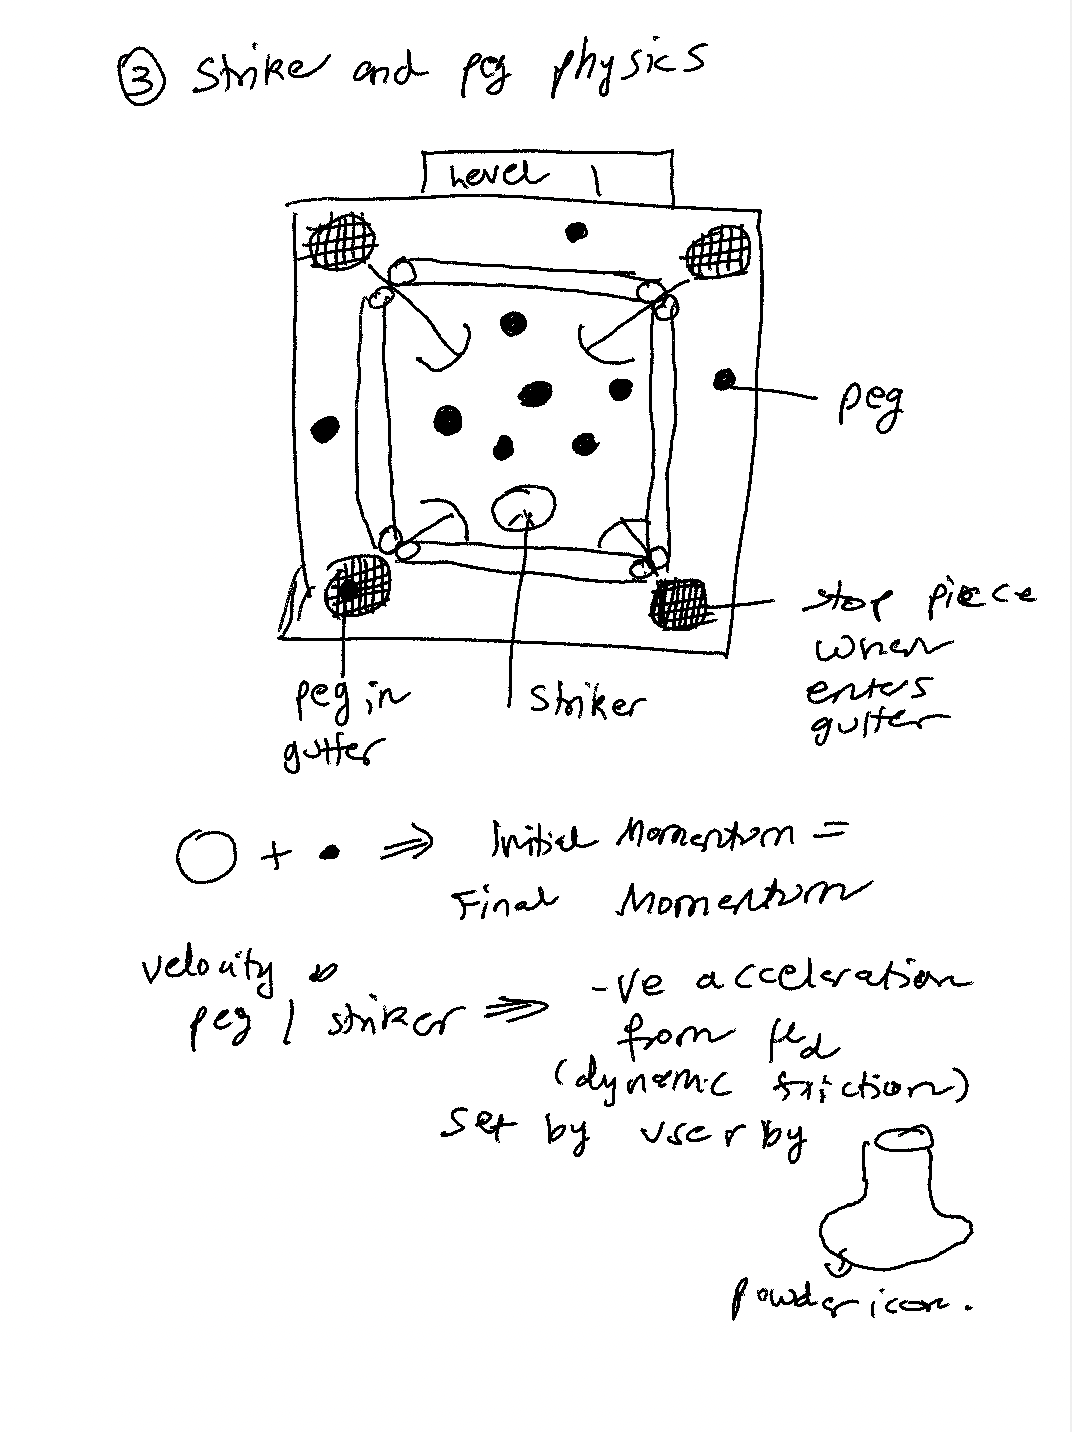 ③ Strike and peg physics
Level 1
peg
stop piece
when
enters
gutter
peg in
gutter
Striker
+ ⇒ Initial Momentum =
Final Momentum
velocity
peg / striker ⇒ -ve acceleration
from μd
(dynamic friction)
set by user by
powder icon.